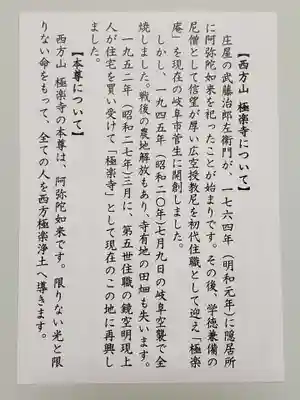 【西方山 極楽寺について】
庄屋の武藤治郎左衛門が、一七六四年(明和元年)に隠居所
に阿弥陀如来を祀ったことが始まりです。その後、学徳兼備の
尼僧として信望が厚い広空授教尼を初代住職として迎え「極楽
庵」を現在の岐阜市菅生に開創しました。
しかし、一九四五年(昭和二〇年)七月九日の岐阜空襲で全
焼しました。戦後の農地解放もあり、寺有地の田畑も失います。
一九五二年(昭和二十七年)三月に、第五世住職の鏡空明現上
人が住宅を買い受けて「極楽寺」として現在のこの地に再興し
ました。
【本尊について】
西方山 極楽寺の本尊は、阿弥陀如来です。限りない光と限
りない命をもって、全ての人を西方極楽浄土へ導きます。